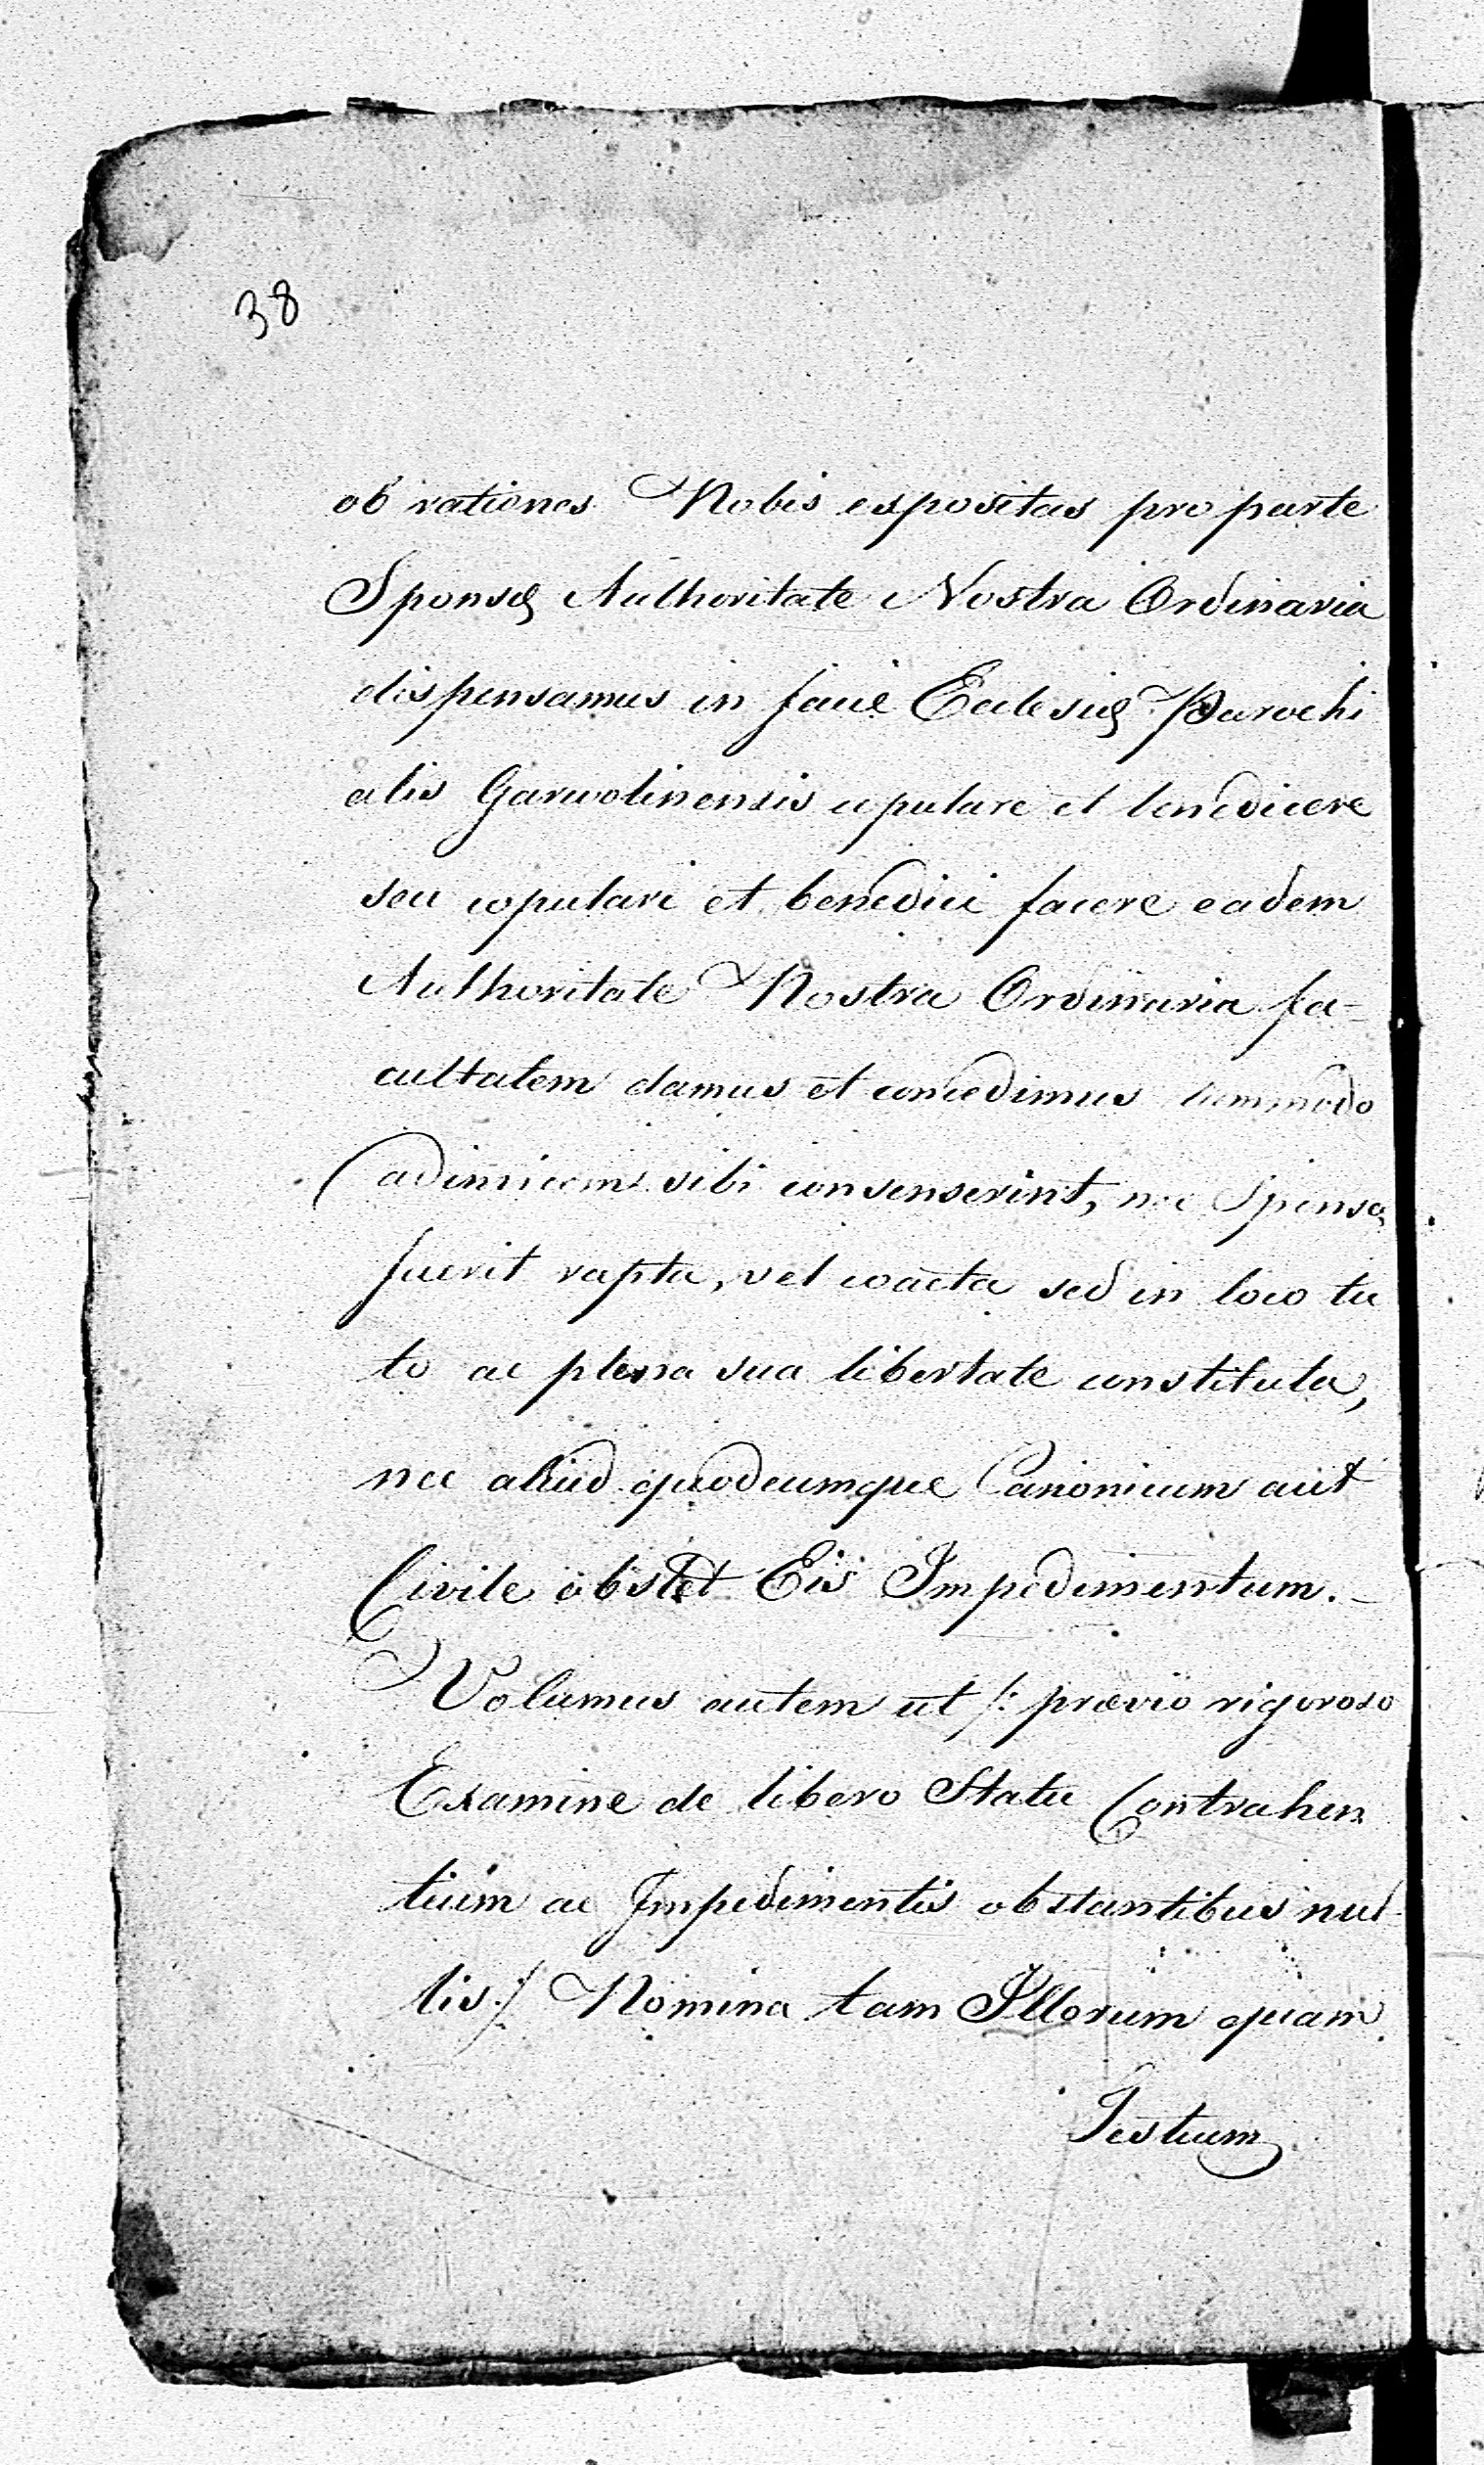 38
ob rationes Nobis expositas pro parte
Sponsę Authoritate Nostra Ordinaria
dispensamus in facie Ecclesię Parochi
alis Garwolinensis copulare et benedicere
seu copulari et benedici facere eadem
Authoritate Nostra Ordinaria fa-
cultatem damus et concedimus dummodo
adinvicem sibi consenserint, nec Sponsa
fuerit rapta, vel coacta sed in loco tu
to ac plena sua libertate constituta,
nec aliud quodcumque Canonicum aut
Civile obstet Eis Impedimentum. –
Volumus autem ut /: prævio rigoroso
Examine de libero Statu Contrahen
tium ac Impedimentis obstantibus nul-
lis :/ Nomina tam Illorum quam
Testium